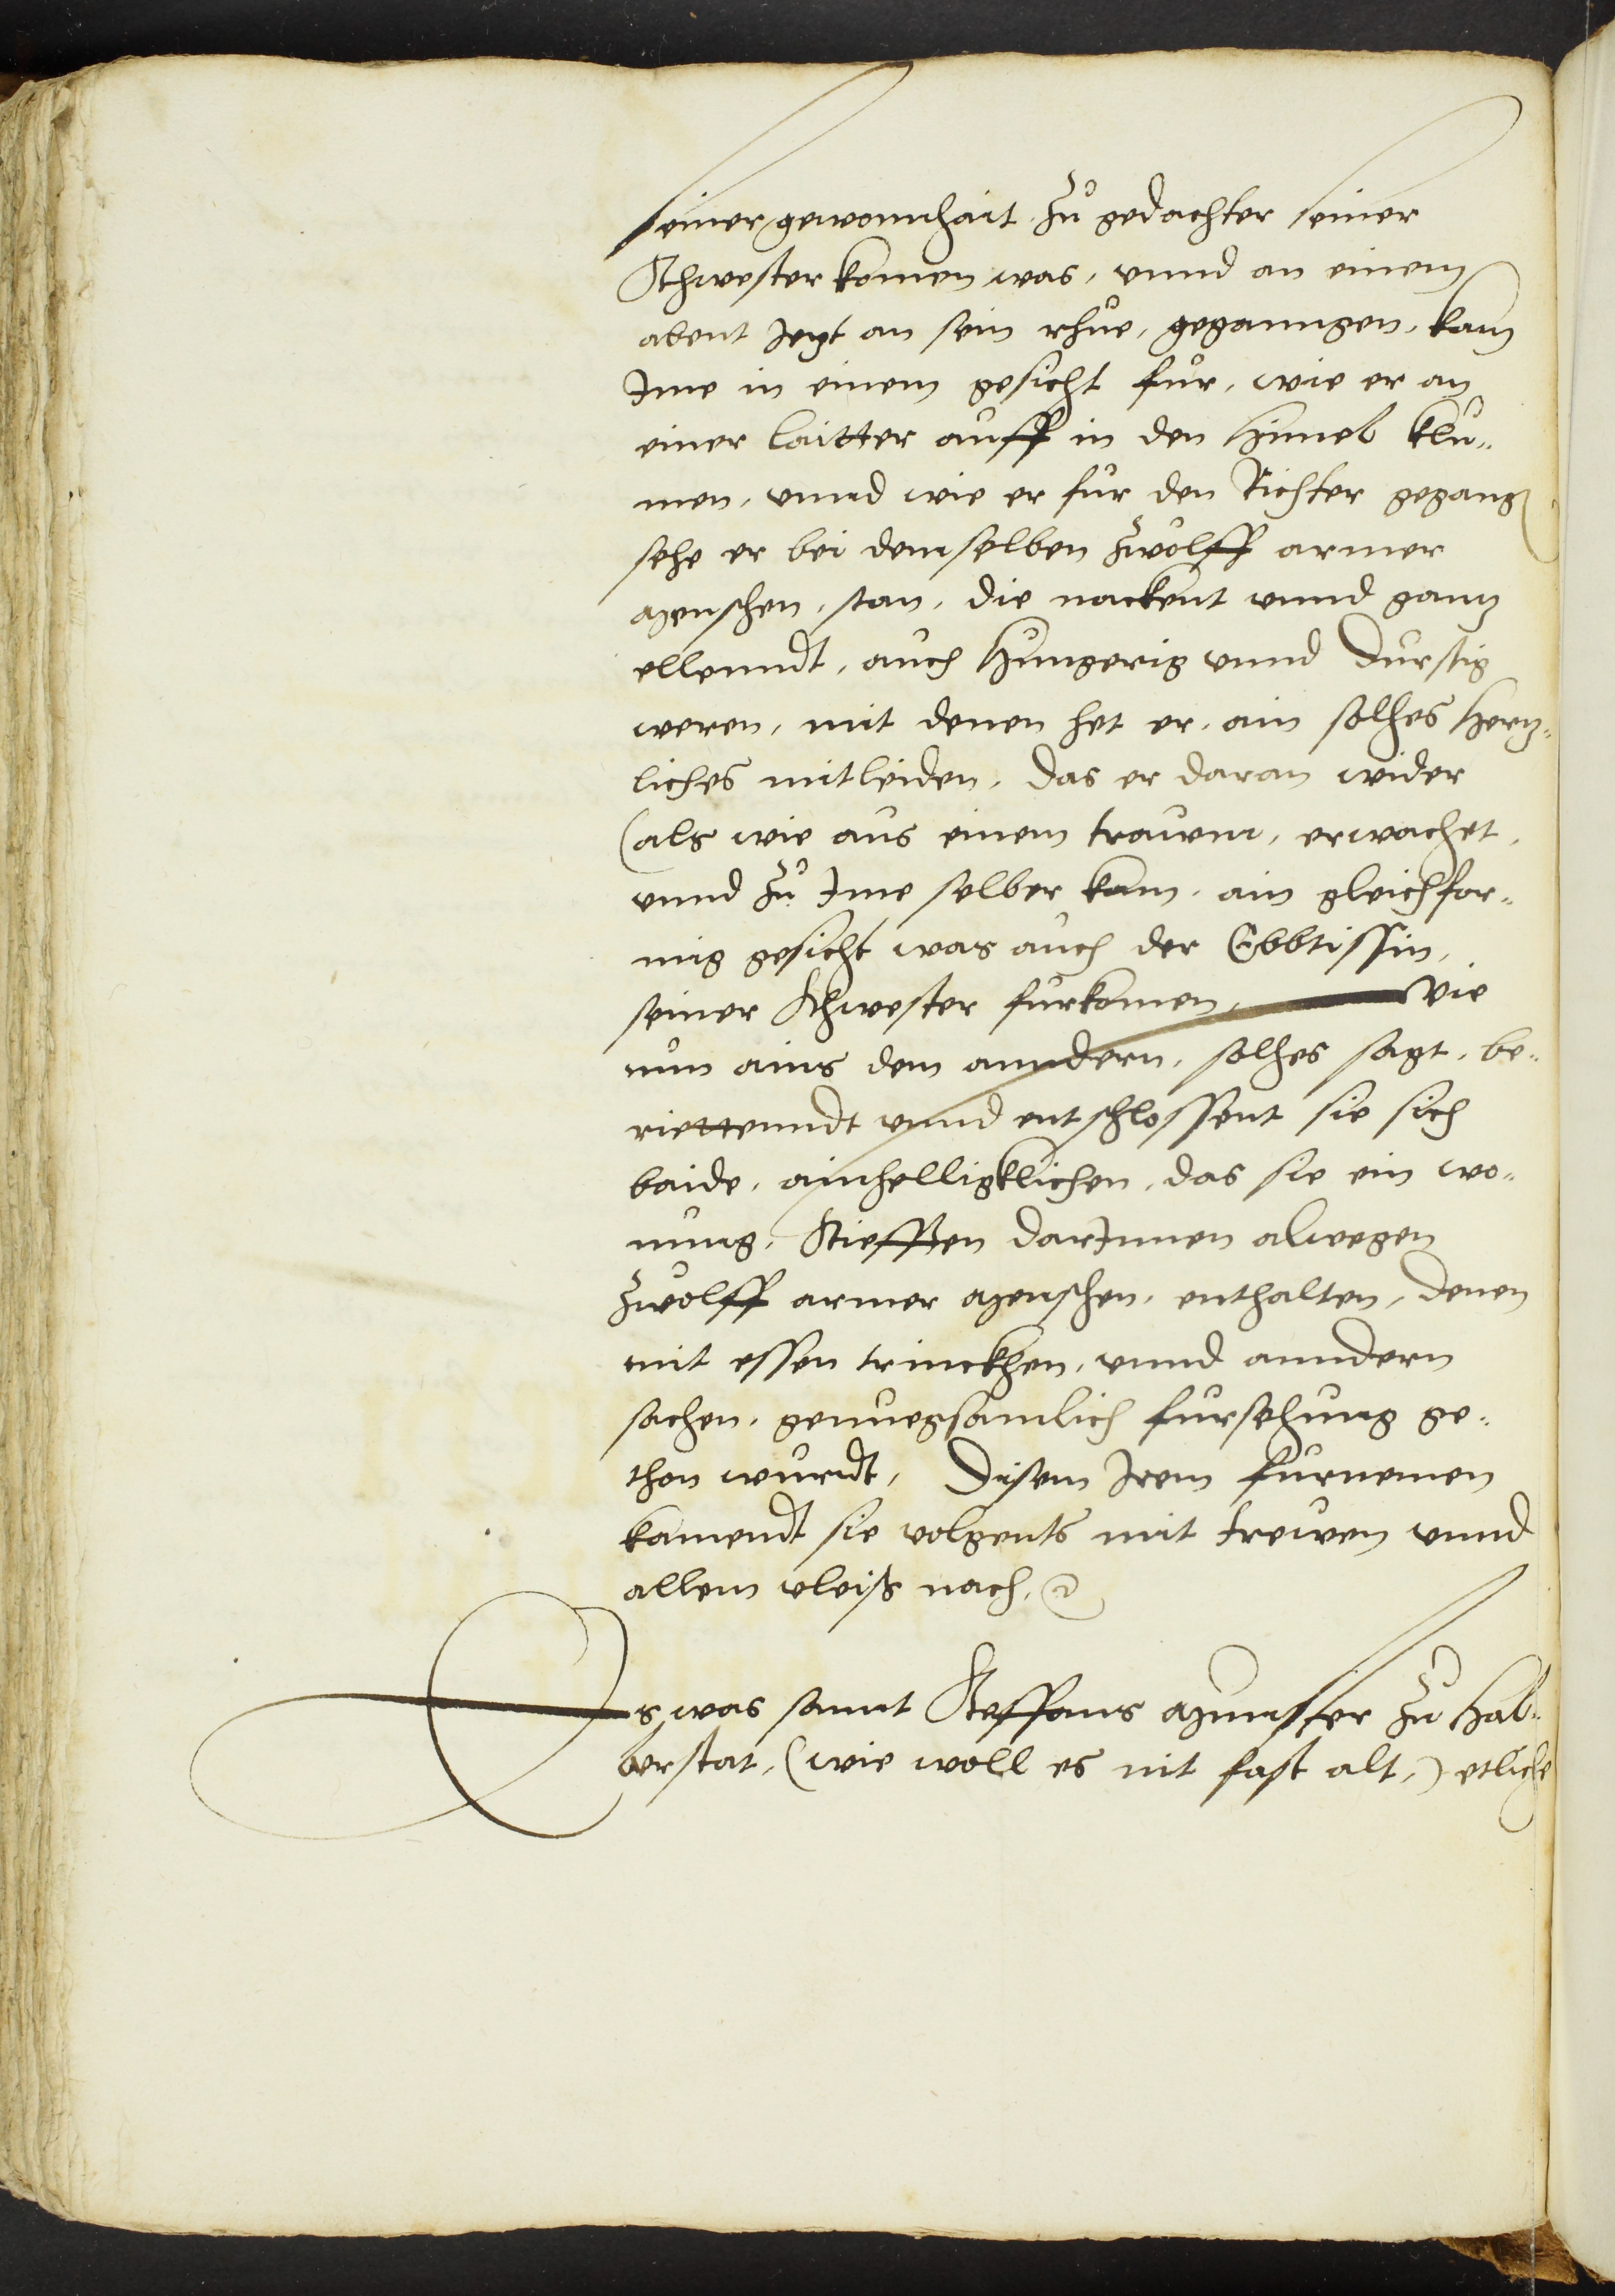 seiner gewonnhait. Zů gedachter seiner
Schwester komen was, vnnd an einem
abent Jezt an sein rhůe, geganngen, kam
Ime in einem gesicht für, wie er an
einer laitter auff in den himel klu¬
men, vnnd wie er für den Richter gegang
sehe er bei demselben zwölff armer
menschen, stan, die nackent vnnd gantz
ellenndt, auch hungerig vnnd durstig
weren, mit denen het er, ain solhes hertz¬
liches mitleiden, das er daran wider
(als wie aus einem traŭem, erwachet,
vnnd Zů Ime selber kam, ain gleichfor¬
mig gesicht was auch der Ebbtissin,
seiner Schwester fürkomen, Wie
nŭn ains dem anndern, solhes sagt, be¬
riettenndt vnnd entschlossent sie sich
baide, ainhelligklichen, das sie ein wo¬
nung, Stiefften darInnen alwegen
Zwölff armer menschen, enthalten, denen
mit essen trinckhen, vnnd anndern
sachen, genuegsamlich fürsehung ge¬
thon würdt, Disem Irem fürnemen
kamendt sie volgents mit trewen vnnd
allem vleiß nach.
Es was sannt Steffans mŭnster Zŭ Hal¬
berstat, (wie woll es nit fast alt,) etliche